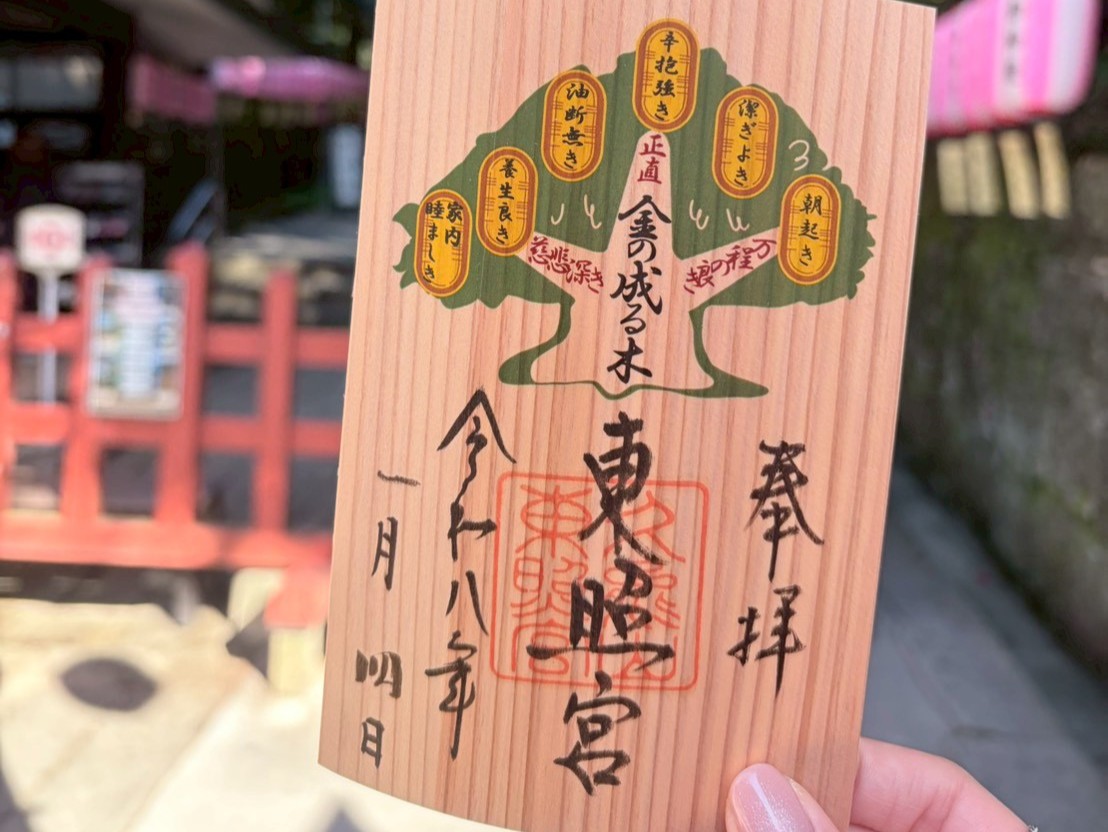 辛抱強き
潔ぎよき
朝起き
油断無き
養生良き
家内
睦ましき
正直
万の程の良き
慈悲深き
金の成る木
奉拝
東照宮
久能山
東照宮
令和八年
一月四日